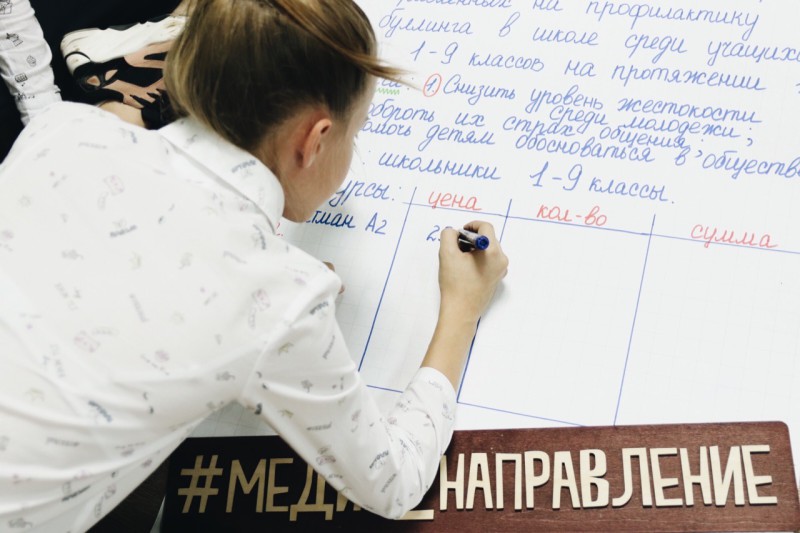 на профилактику
буллинга в школе среди учащихся
1-9 классов на протяжении
① Снизить уровень жестокости
среди молодежи;
обороть их страх общения;
помочь детям обосноваться в обществе
: школьники 1-9 классы.
урсы: цена кол-во сумма
тман А2 2
#МЕДИ НАПРАВЛЕНИЕ